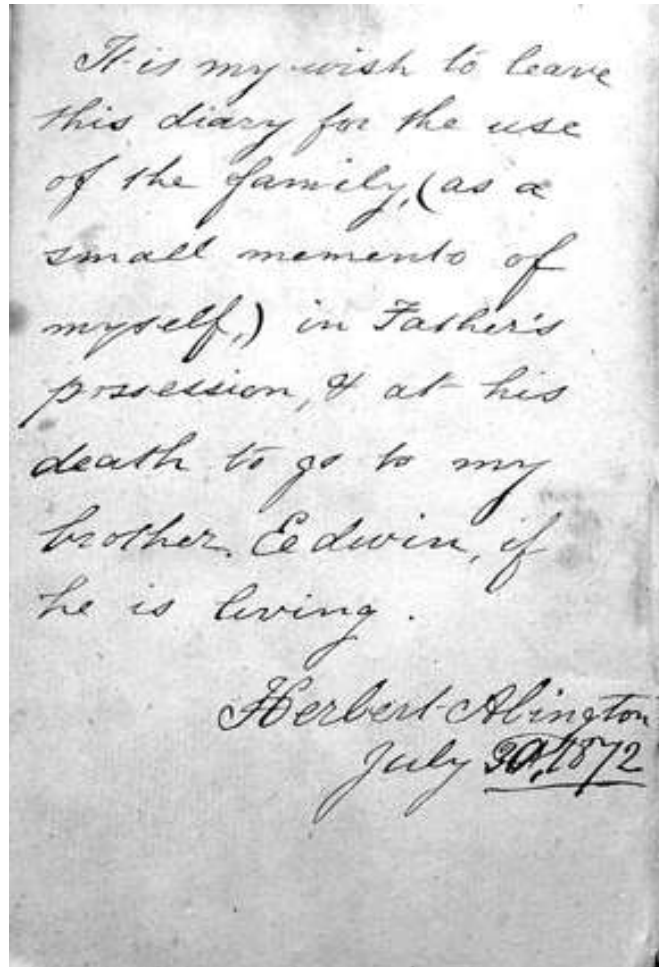 It is my wish to leave
this diary for the use
of the family, (as a
small memento of
myself,) in Father's
possession, & at his
death to go to my
brother, Edwin, if
he is living.
Herbert Abington
July 1872